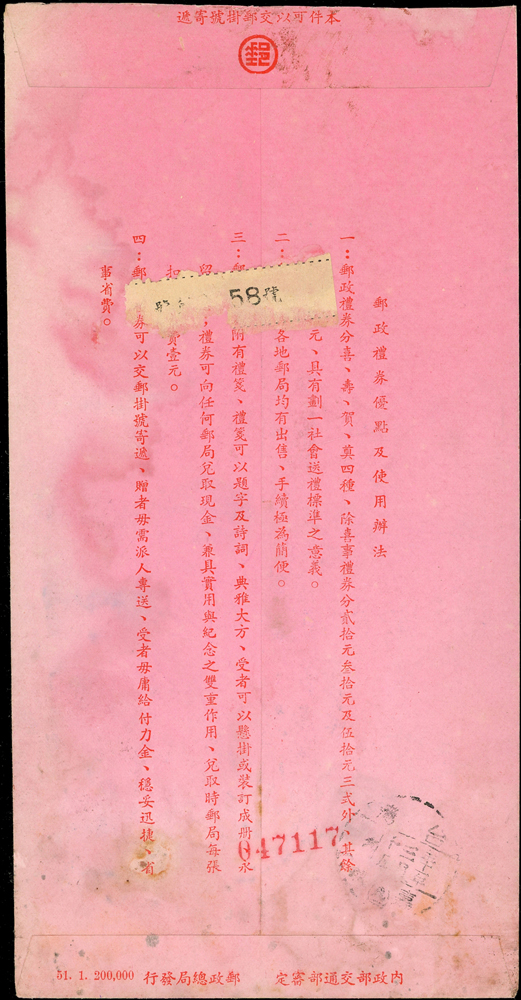 本件可以交郵掛號寄遞
郵
郵政禮券優點及使用辦法
一：郵政禮券分喜、壽、賀、奠四種、除喜事禮券分貳拾元叁拾元及伍拾元三式外、其餘
元、具有劃一社會送禮標準之意義。
二：
各地郵局均有出售、手續極為簡便。
三：郵
附有禮箋、禮箋可以題字及詩詞、典雅大方、受者可以懸掛或裝訂成冊永
留
禮券可向任何郵局兌取現金、兼具實用與紀念之雙重作用、兌取時郵局每張
扣
費壹元。
四：郵
券可以交郵掛號寄遞、贈者毋需派人專送、受者毋庸給付力金、穩妥迅捷、省
事省費。
58號
047117
內政部交通部審定
郵政總局發行
51. 1. 200,000